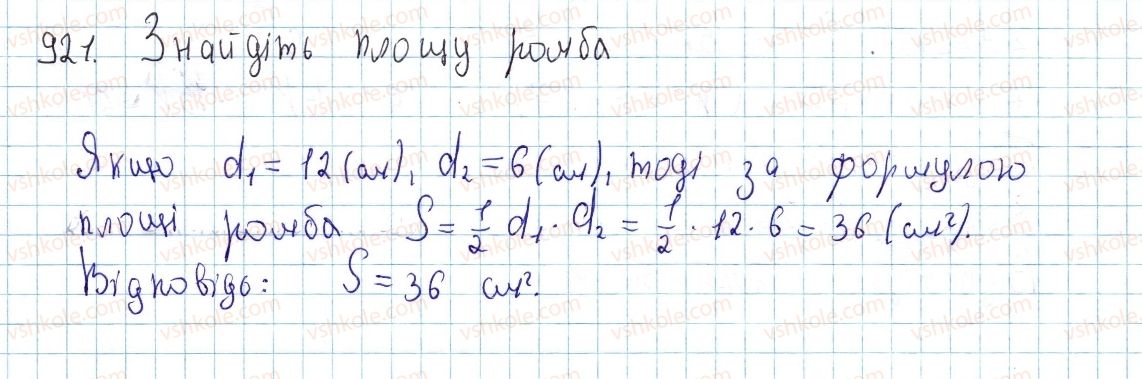 921. Знайдіть площу ромба
Якщо d₁ = 12 (см), d₂ = 6 (см), тоді за формулою
площі ромба S = 1/2 d₁ · d₂ = 1/2 · 12 · 6 = 36 (см²).
Відповідь: S = 36 см².